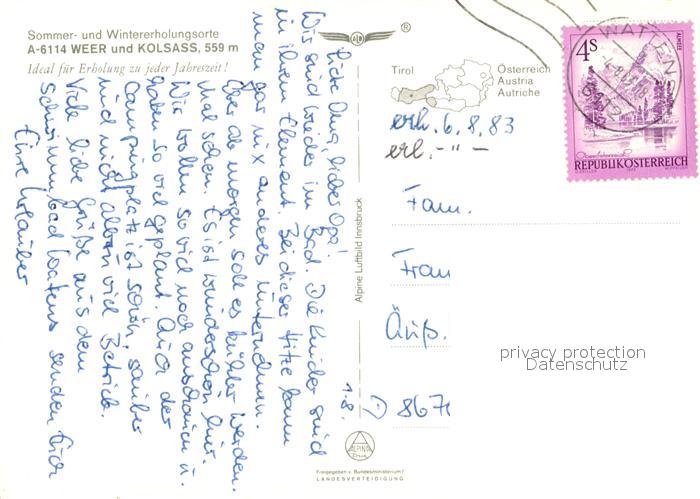 Sommer- und Wintererholungsorte
A-6114 WEER und KOLSASS, 559 m
Ideal für Erholung zu jeder Jahreszeit!
®
Tirol
Österreich
Austria
Autriche
4S
ALMSEE
REPUBLIK ÖSTERREICH
WATTENS
6112
erh. 6.8.83
erl. - " -
Fam.
Frau
Äuß.
D 867
privacy protection
Datenschutz
Alpine Luftbild Innsbruck
ALPINE
Freigegeben v. Bundesministerium f.
LANDESVERTEIDIGUNG
1.8.
Liebe Oma, lieber Opa!
Wir sind wieder im Bad. Die Kinder sind
in ihrem Element. Bei dieser Hitze kann
man gar nix anderes unternehmen.
Aber ab morgen soll es kühler werden.
Mal sehen. Es ist wunderschön hier.
Wir wollen so viel noch anschauen u.
haben so viel geplant. Auch der
Campingplatz ist schön, sauber
und nicht allzu viel Betrieb.
Viele liebe Grüße aus dem
Schwimmbad Wattens senden Euch
Eure Urlauber